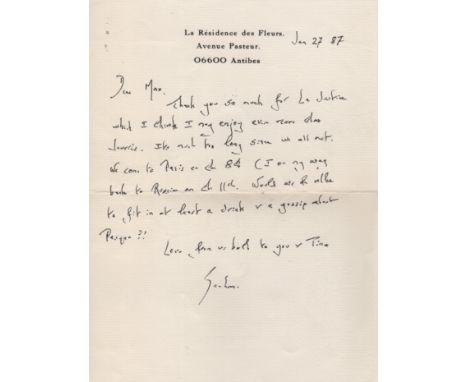 La Résidence des Fleurs.
Avenue Pasteur.
06600 Antibes
Jan 27 87
Dear Max,
Thank you so much for La Justice
which I think I may enjoy even more than
It's much too long since we all met.
We come to Paris on the 8th (I on my way
back to Russia on the 11th. Would we be able
to fit in at least a drink & a gossip about
Pasqua?!
Love from us both to you & Tina
Graham.